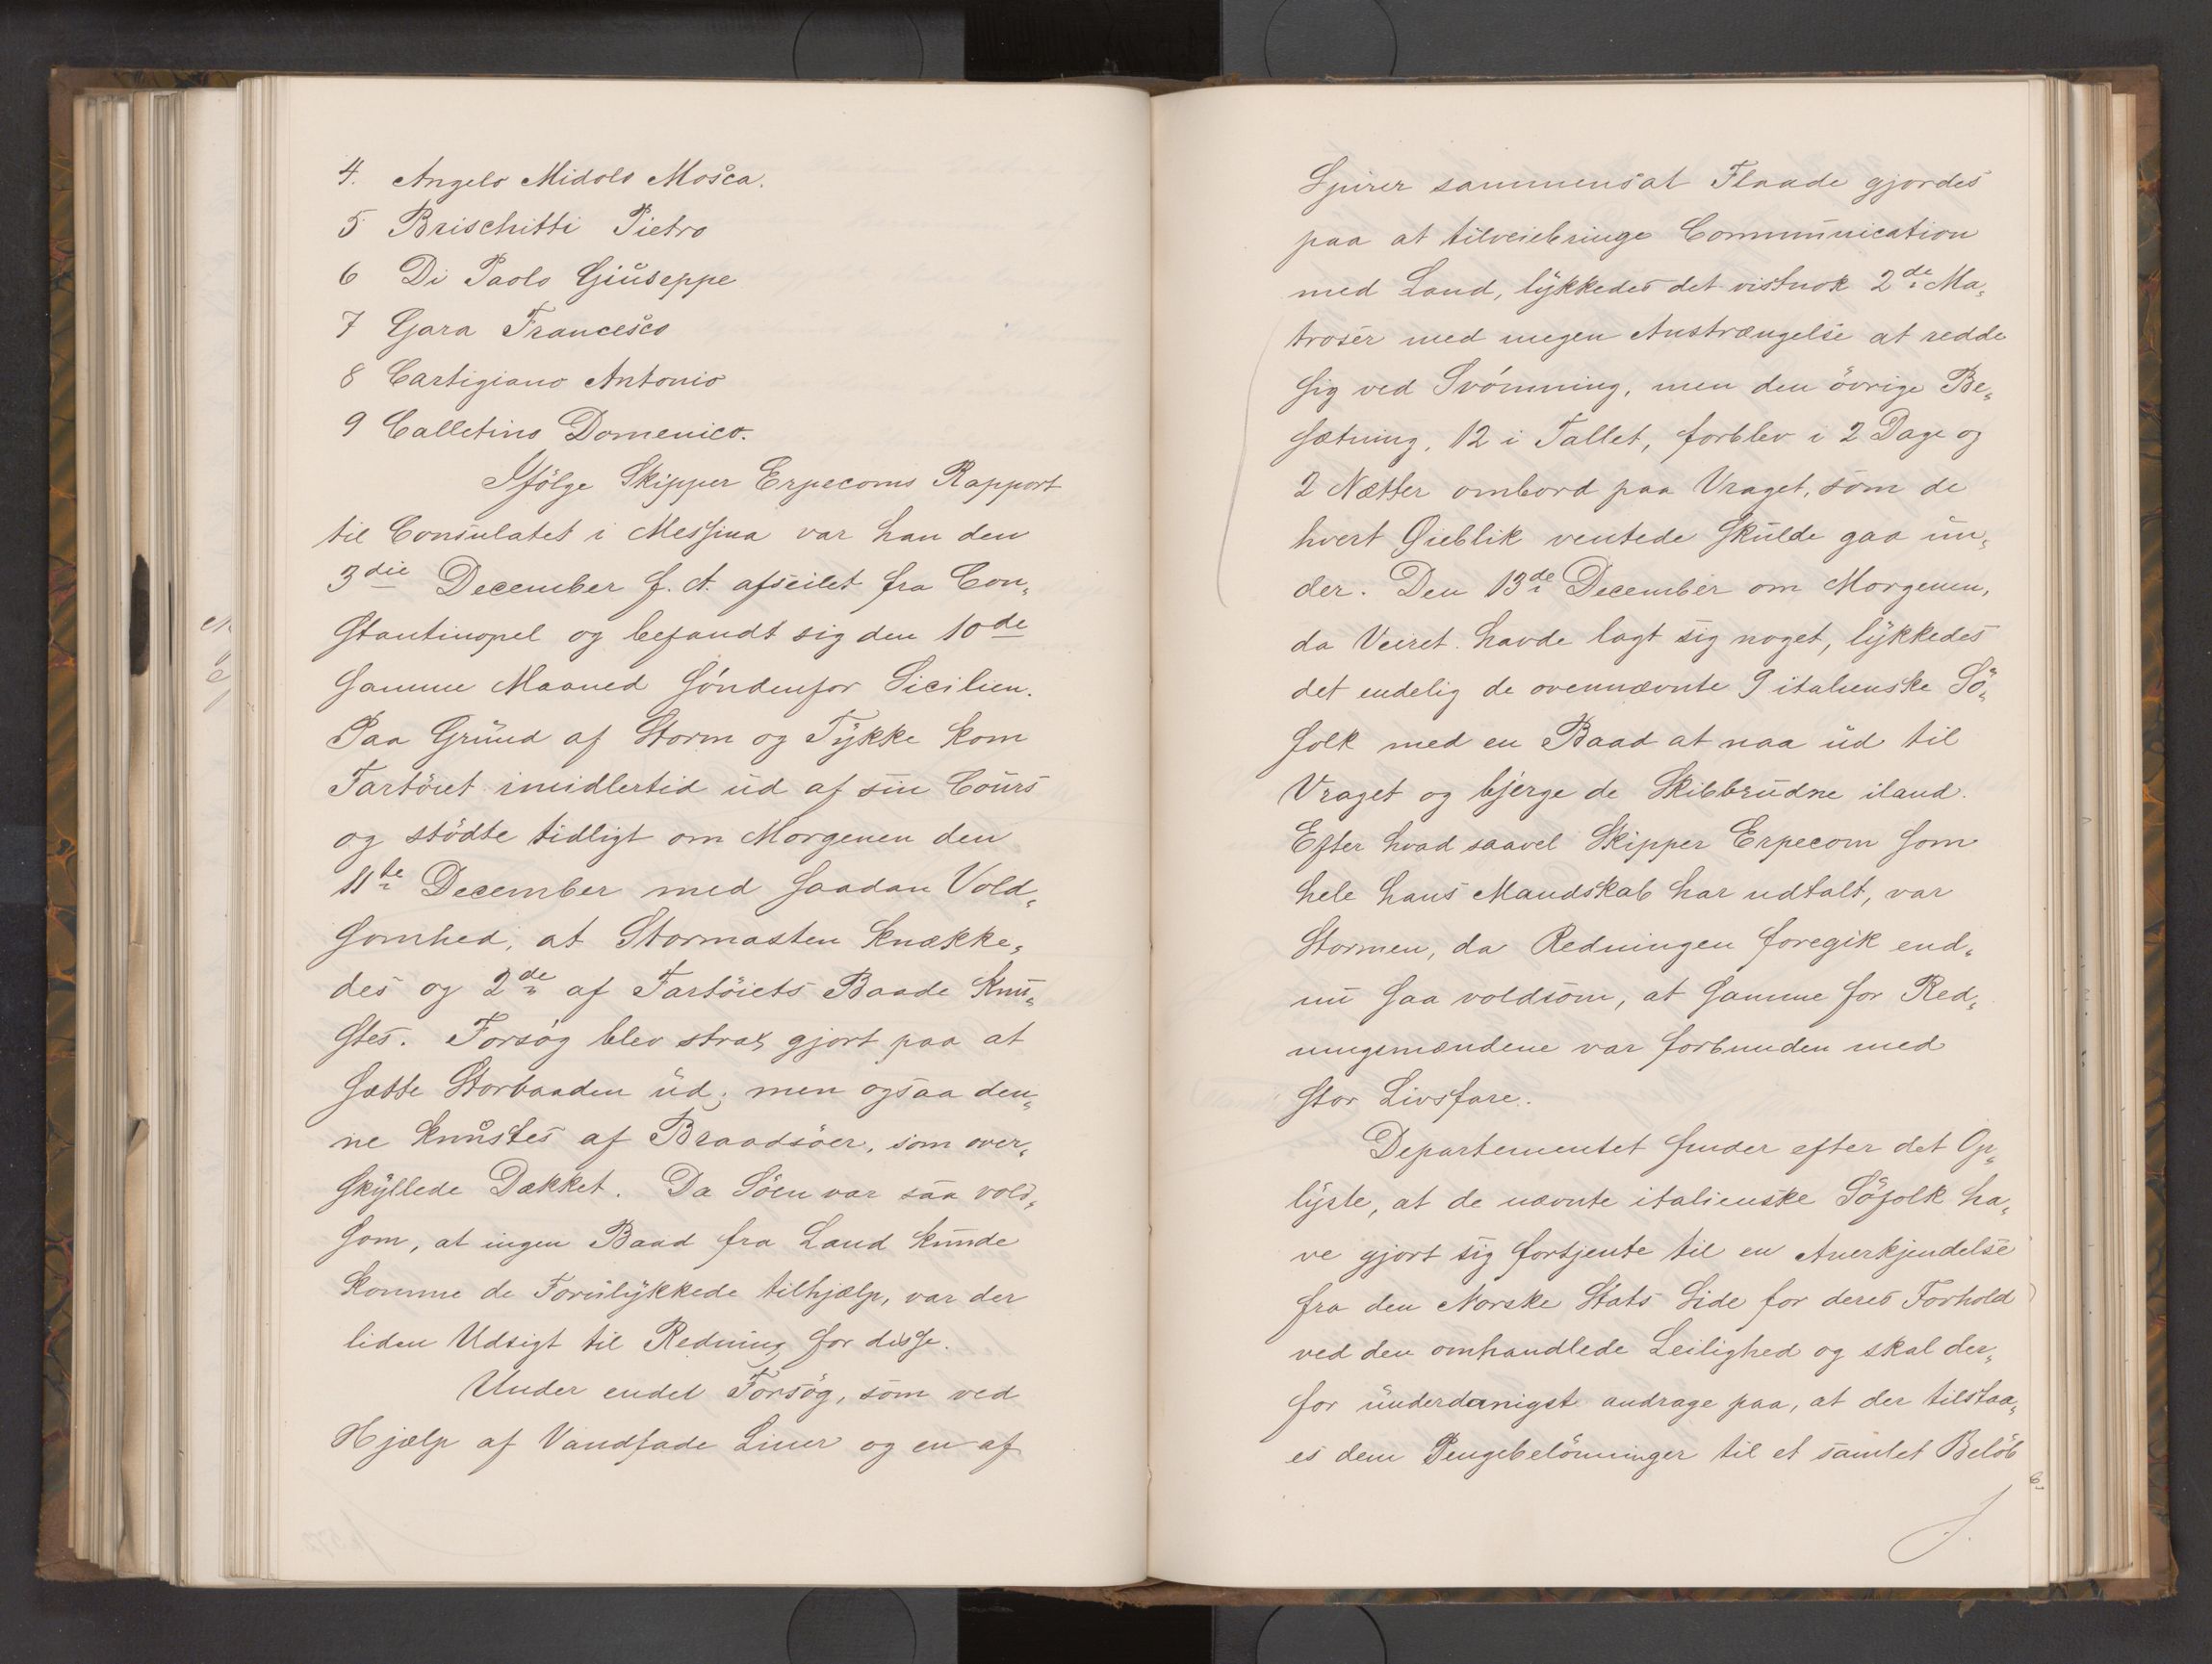 4. Angelo Midolo Mosca.
5 Brischitti Pietro
6 Di Paolo Giuseppe
7 Gara Francesco
8 Cartigiano Antonio
9 Calletino Domenico.
Ifölge Skipper Erpecoms Rapport
til Consulatet i Messina var han den
3die December f. A. afseilet fra Con„
stantinopel og befandt sig den 10de
samme Maaned söndenfor Sicilien.
Paa Grund af Storm og Tykke kom
Fartöiet imidlertid ud af sin Cours
og stödte tidligt om Morgenen den
11te December med saadan Vold„
somhed, at Stormasten knække„
des og 2de af Fartöiets Baade knu„
stes. Forsøg blev strax gjort paa at
sætte Storbaaden ud; men ogsaa den„
ne knustes af Braadsöer, som over„
skyllede Dækket. Da Söen var saa vold„
som, at ingen Baad fra Land kunde
komme de Forulykkede tilhjælp, var der
liden Udsigt til Redning for disse.
Under endel Forsög, som ved
Hjælp af Vandfade Liner og en af
Spirer sammensat Flaade gjordes
paa at tilveiebringe Communication
med Land, lykkedes det vistnok 2de Ma„
troser med megen Anstrængelse at redde
sig ved Svömning, men den övrige Be„
sætning, 12 i Tallet, forblev i 2 Dage og
2 Nætter ombord paa Vraget, som de
hvert Øieblik ventede skulde gaa un„
der. Den 13de December om Morgenen,
da Veiret havde lagt sig noget, lykkedes
det endelig de ovennævnte 9 italienske Sö„
folk med en Baad at naa ud til
Vraget og bjerge de Skibbrudne iland.
Efter hvad saavel Skipper Erpecom som
hele hans Mandskab har udtalt, var
Stormen, da Redningen foregik end„
nu saa voldsom, at samme for Red„
ningsmændene var forbunden med
stor Livsfare.
Departementet finder efter det Op„
lyste, at de nævnte italienske Söfolk ha„
ve gjort sig fortjente til en Anerkjendelse
fra den Norske Stats Side for deres Forhold
ved den omhandlede Leilighed og skal der„
for underdanigst andrage paa, at der tilstaa„
es dem Pengebelönninger til et samlet Belöb